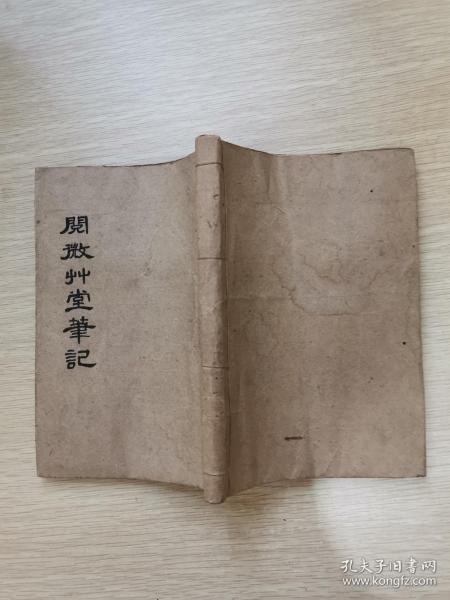 閱微艸堂筆記
孔夫子旧书网
www.kongfz.com